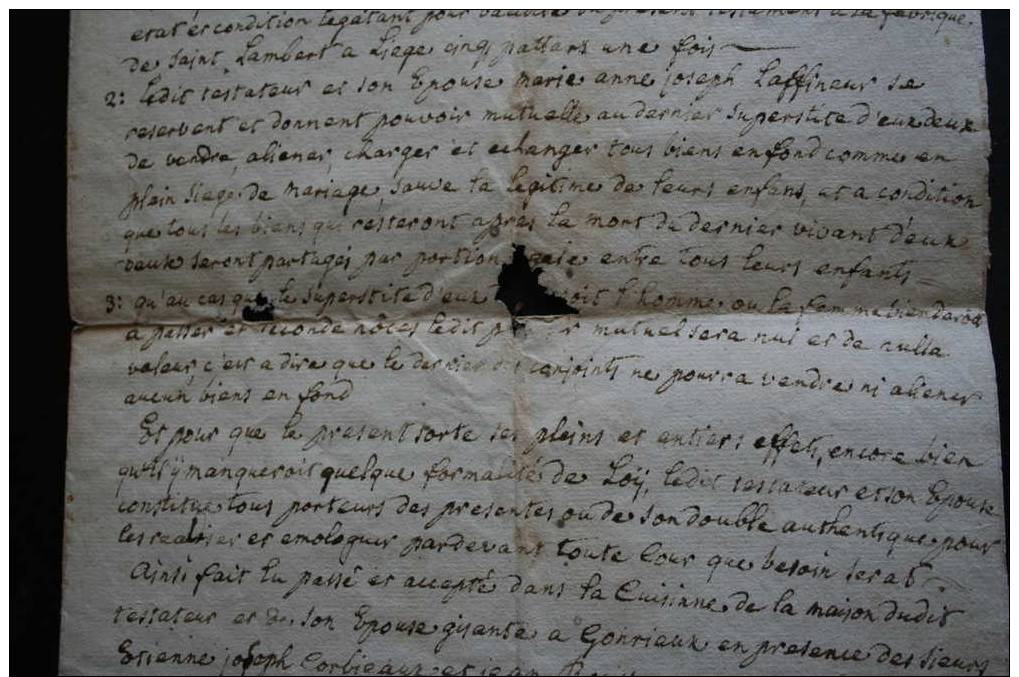 etat et condition legatant pour validité du present testament a la fabrique
de saint Lambert a Liege cinq pattars une fois
2: ledit testateur et son Epouse marie anne joseph Laffineur se
reservent et donnent pouvoir mutuelle au dernier superstite d'eux deux
de vendre, aliener, charger et echanger tous biens en fond comme en
plein siege de mariage, sauve la legitime de leurs enfans, et a condition
que tous les biens qui resteront apres la mort du dernier vivant d'eux
deux seront partages par portion egale entre tous leurs enfants
3: qu'au cas que le superstite d'eux soit l'homme ou la femme viendaroit
a passer et seconde nôces ledit mutuel sera nul et de nulla
valeur, c'est a dire que le dernier des conjoints ne pourra vendre ni aliener
aucun biens en fond
Et pour que le present sorte ses pleins et entiers effets, encore bien
qu'il ÿ manqueroit quelque formalité de Loÿ, ledit testateur et son Epouse
constitue tous porteurs des presentes ou de son double authentique pour
les realiser et emologuer pardevant toute Cour que besoin serat
Ainsi fait lu passé et accepté dans la Cuisinne de la maison dudit
testateur et de son Epouse gisante a Gonrieux en presence des sieurs
Etienne joseph Corbieaux et jean